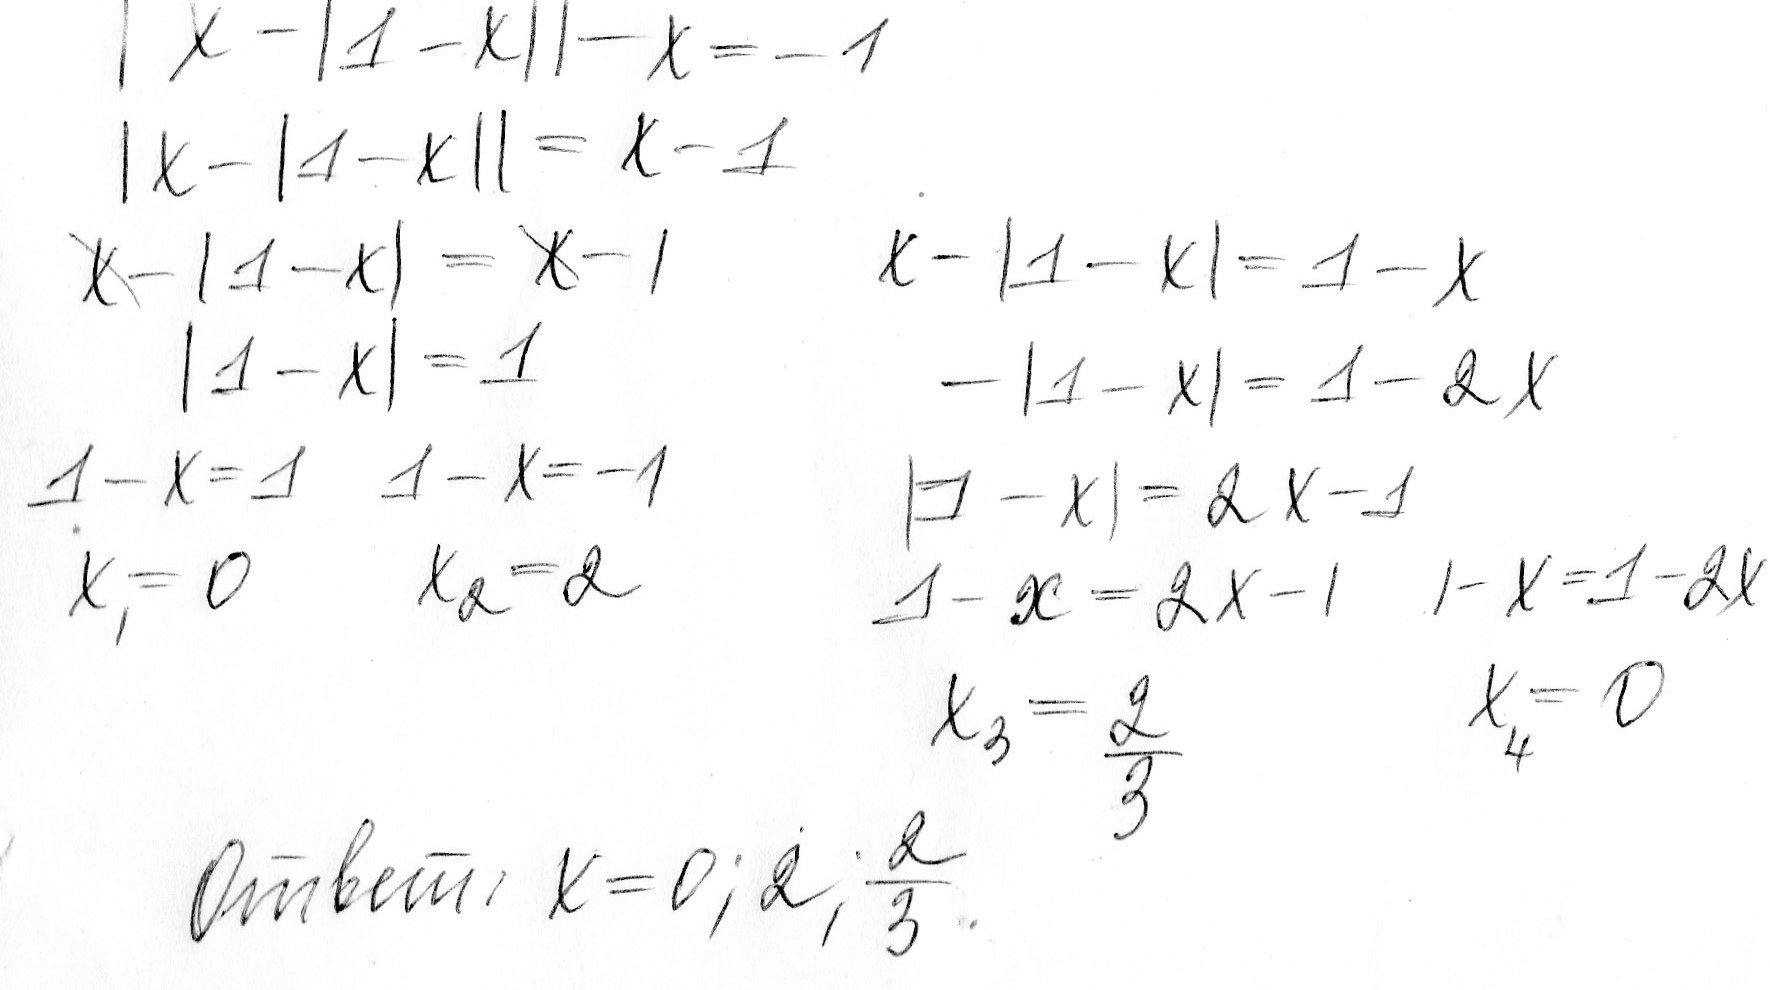 |x-|1-x||-x=-1
|x-|1-x||=x-1
x-|1-x|=x-1 x-|1-x|=1-x
|1-x|=1 -|1-x|=1-2x
1-x=1 1-x=-1 |1-x|=2x-1
x₁=0 x₂=2 1-x=2x-1 1-x=1-2x
x₃=2/3 x₄=0
Ответ: x=0; 2; 2/3.